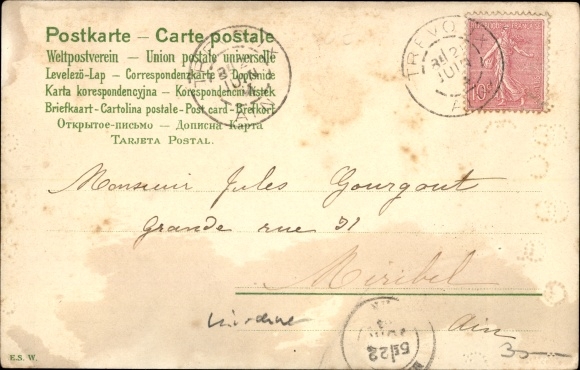 Postkarte – Carte postale
Weltpostverein – Union postale universelle
Levelező-Lap – Correspondenzkarte – Dopisnice
Karta korespondencyjna – Korespondenční lístek
Briefkaart - Cartolina postale - Post card - Brefkort
Открытое-письмо – Дописна Карта
Tarjeta Postal.
TREVOUX
AIN
10
Monsieur Jules Gourgout
Grande rue 31
Miribel
Ain
30 —
E.S.W.